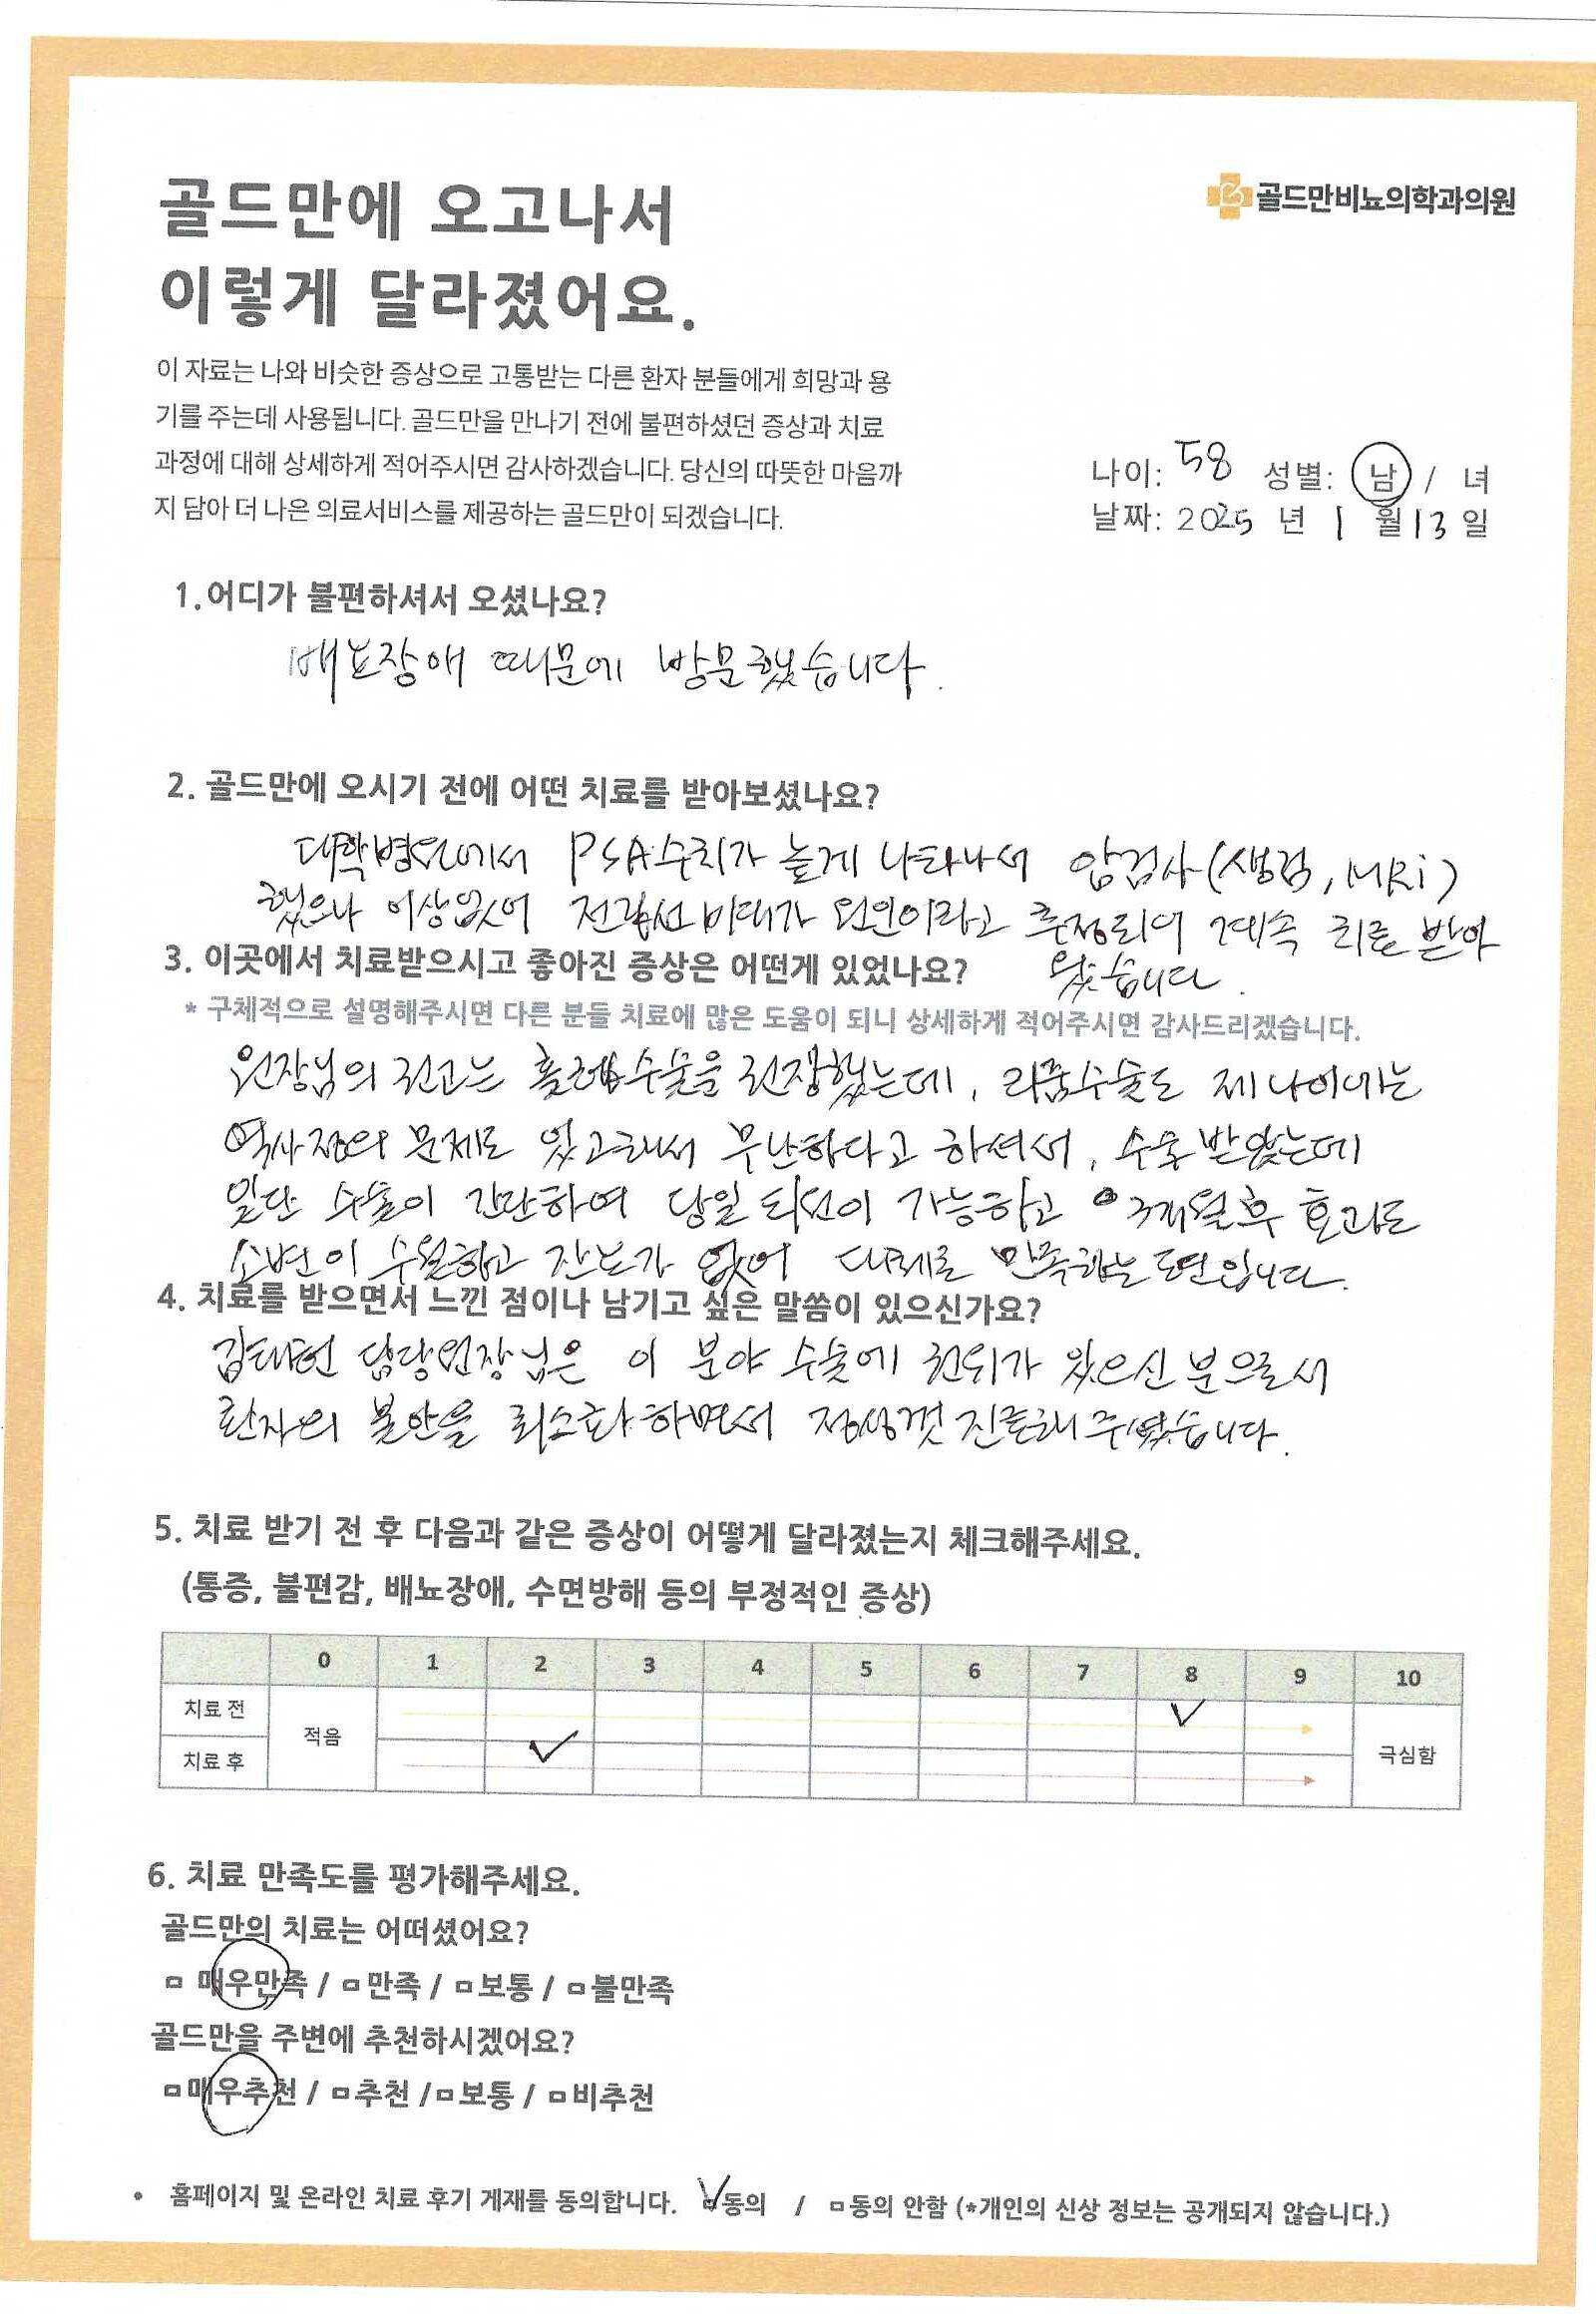 골드만에 오고나서
이렇게 달라졌어요.
골드만비뇨의학과의원
이 자료는 나와 비슷한 증상으로 고통받는 다른 환자 분들에게 희망과 용
기를 주는데 사용됩니다. 골드만을 만나기 전에 불편하셨던 증상과 치료
과정에 대해 상세하게 적어주시면 감사하겠습니다. 당신의 따뜻한 마음까
지 담아 더 나은 의료서비스를 제공하는 골드만이 되겠습니다.
나이: 58 성별: 남 / 녀
날짜: 2025 년 1 월 13 일
1.어디가 불편하셔서 오셨나요?
배뇨장애 때문에 방문했습니다.
2. 골드만에 오시기 전에 어떤 치료를 받아보셨나요?
대학병원에서 PSA수치가 높게 나타나서 암검사(생검, MRi)
했으나 이상없어 전립선비대가 원인이라고 추정되어 계속 치료 받아
왔습니다.
3. 이곳에서 치료받으시고 좋아진 증상은 어떤게 있었나요?
* 구체적으로 설명해주시면 다른 분들 치료에 많은 도움이 되니 상세하게 적어주시면 감사드리겠습니다.
원장님의 권고는 홀렙수술을 권장했는데, 리줌수술도 제 나이에는
역사정의 문제도 있고해서 무난하다고 하셔서, 수술 받았는데
일단 수술이 간단하여 당일 퇴원이 가능하고 3개월후 효과도
소변이 수월하고 잔뇨가 없어 대체로 만족하는 편입니다.
4. 치료를 받으면서 느낀 점이나 남기고 싶은 말씀이 있으신가요?
김태헌 담당원장님은 이 분야 수술에 권위가 있으신 분으로서
환자의 불안을 최소화하면서 정성껏 진료해 주셨습니다.
5. 치료 받기 전 후 다음과 같은 증상이 어떻게 달라졌는지 체크해주세요.
(통증, 불편감, 배뇨장애, 수면방해 등의 부정적인 증상)
0 1 2 3 4 5 6 7 8 9 10
치료 전
적음
치료 후
극심함
6. 치료 만족도를 평가해주세요.
골드만의 치료는 어떠셨어요?
□ 매우만족 / □ 만족 / □ 보통 / □ 불만족
골드만을 주변에 추천하시겠어요?
□ 매우추천 / □ 추천 / □ 보통 / □ 비추천
• 홈페이지 및 온라인 치료 후기 게재를 동의합니다. □동의 / □동의 안함 (*개인의 신상 정보는 공개되지 않습니다.)